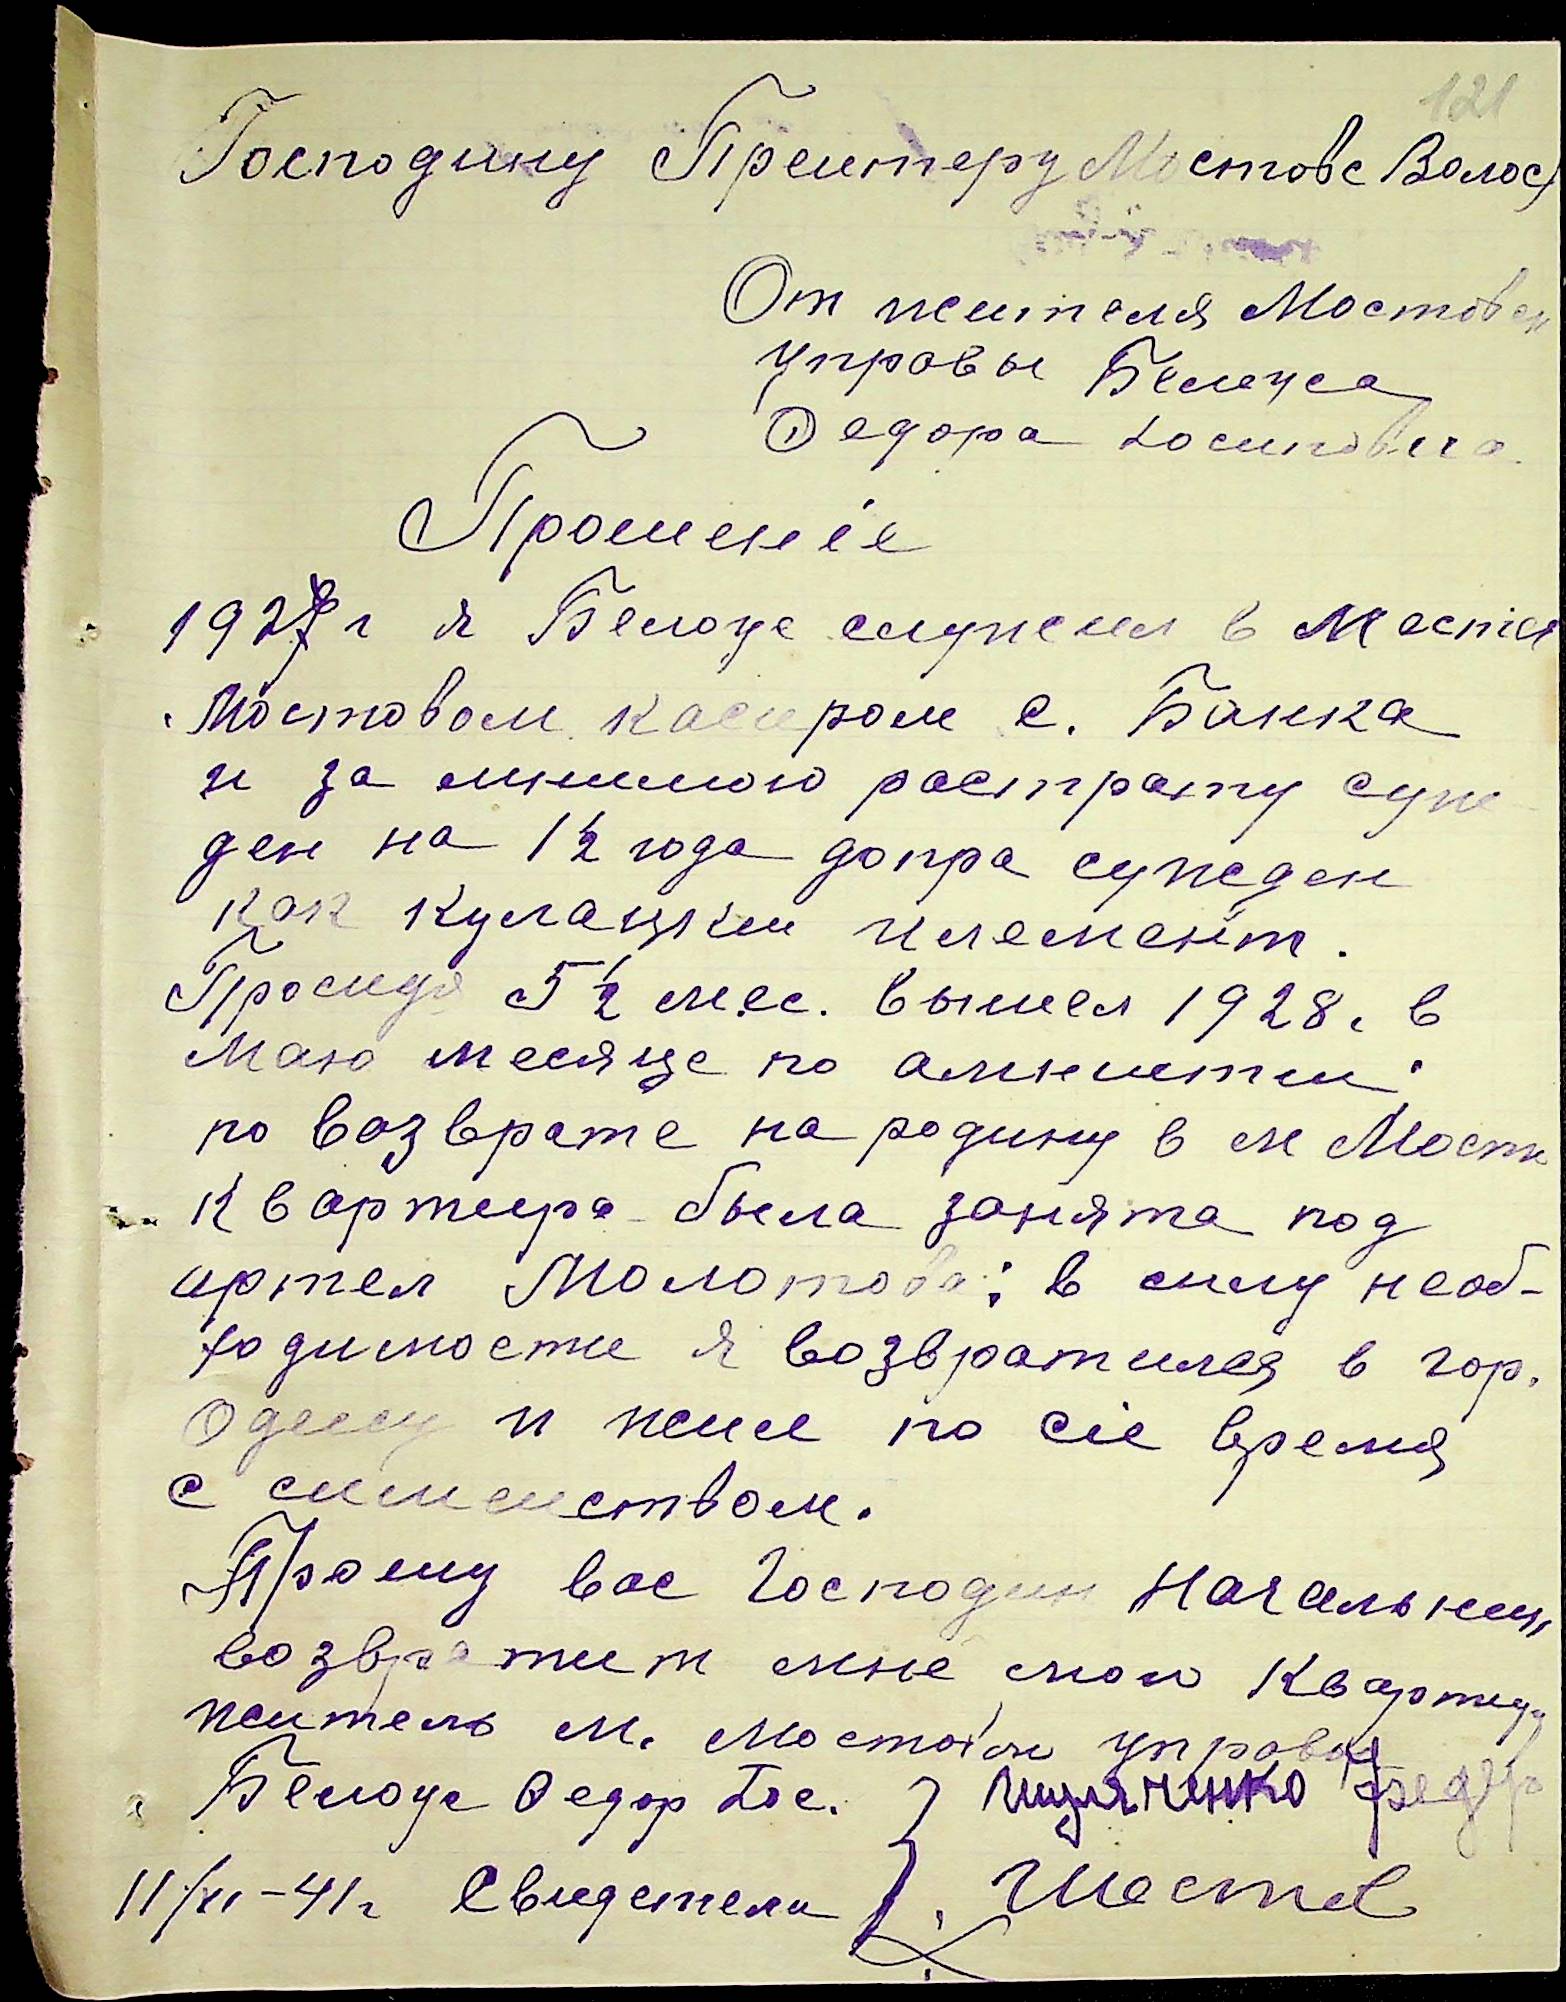 121
Господину Преитеру Мостовс Волос
От жителя Мостовск
управы Белоуса
Федора Іосиповича
Прошеніе
1927 г я Белоус служил в Местеч
Мостовом касиром с. Банка
и за мнимою растрату суж
ден на 1½ года допра сужден
как кулацким илемент.
Просидя 5½ мес. вышел 1928. в
маю месяце по амнистии.
по возврате на родину в м Мост
Квартира была занята под
артел Молотова: в силу необ-
ходимости я возвратился в гор.
Одессу и жил по сіе время
с симейством.
Прошу вас Господин Начальник
возвратит мне мою квартиру
житель м. Мостовой управы
Белоус Федор Іос. Федор
11/XI-41г Свидетели